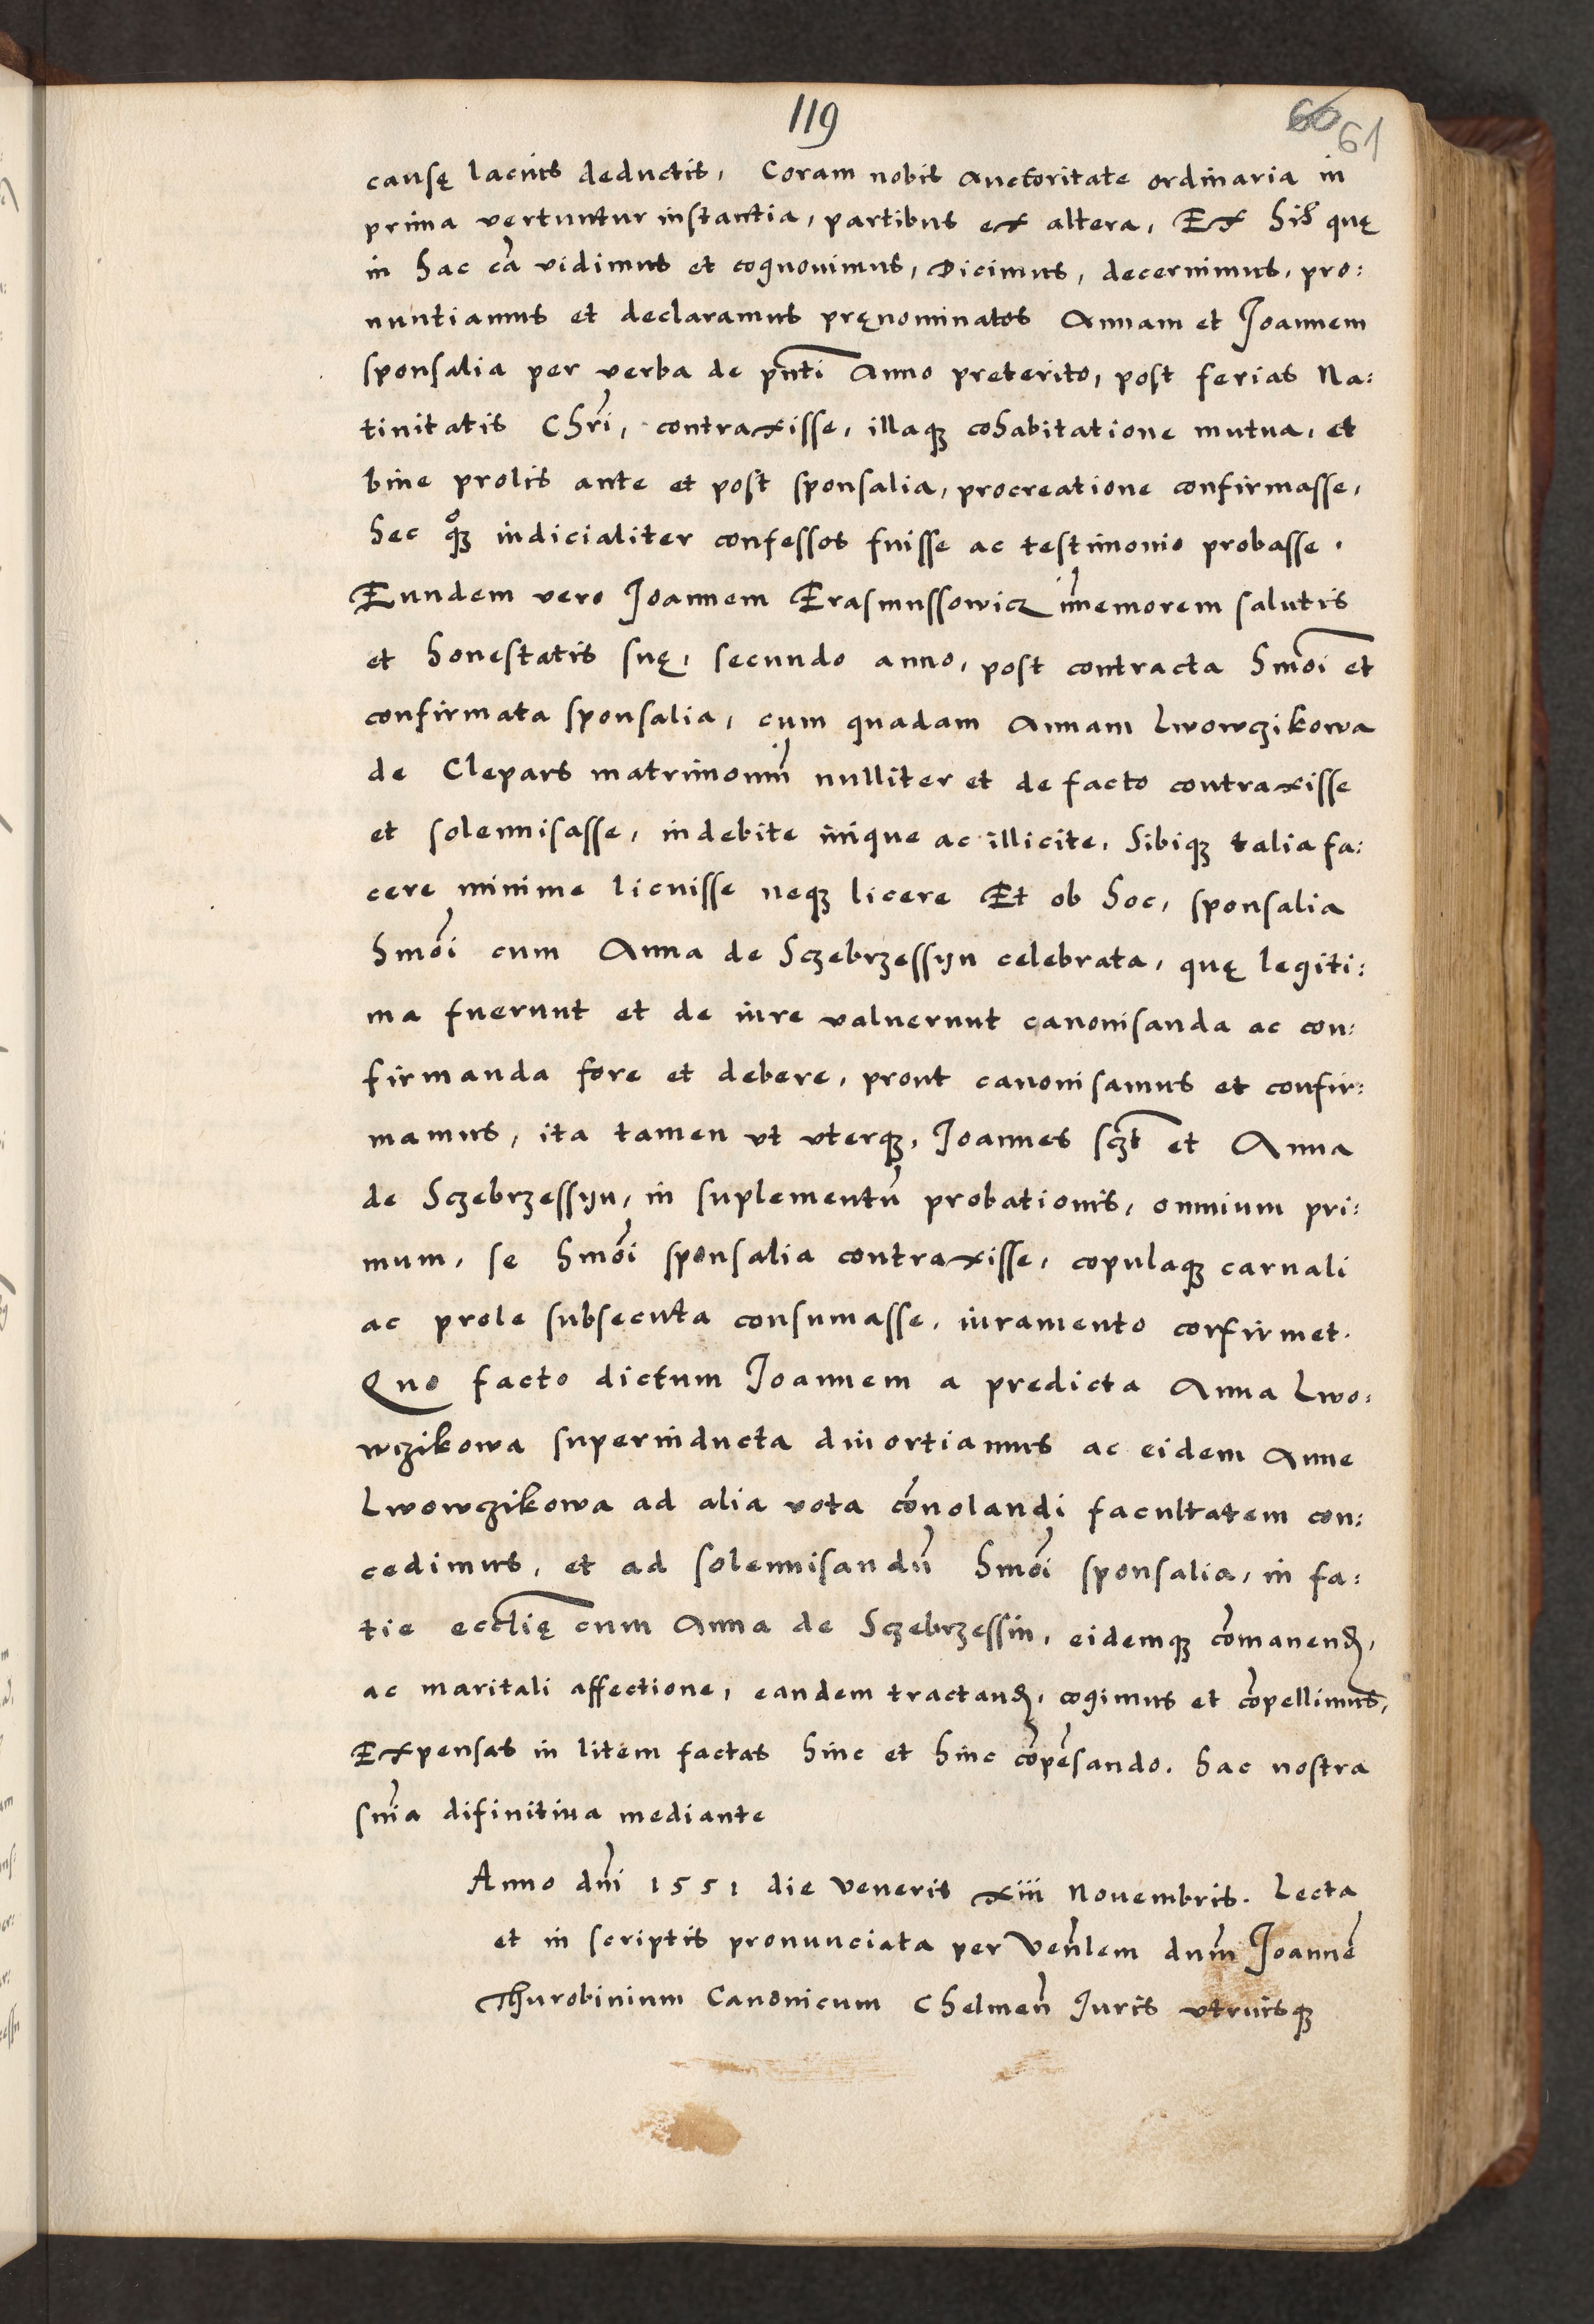 119
60 61
causę lacius deductis, Coram nobis auctoritate ordinaria in
prima vertuntur instantia, partibus ex altera, Ex his quę
in hac cā vidimus et cognouimus, Dicimus, decernimus, pro:
nuntiamus et declaramus pręnominatos Annam et Joannem
sponsalia per verba de pnti Anno preterito, post ferias Na:
tiuitatis Chri, contraxisse, illaqȝ cohabitatione mutua, et
bine prolis ante et post sponsalia, procreatione confirmasse,
hec qoȝ iudicialiter confessos fuisse ac testimonio probasse.
Eundem vero Joannem Erasmussowicz im̄emorem salutis
et honestatis suę, secundo anno, post contracta hmoi et
confirmata sponsalia, cum quadam Annam Lwowczikowa
de Clepars matrimoniū nulliter et de facto contraxisse
et solennisasse, indebite inique ac illicite, Sibiqȝ talia fa:
cere minime licuisse neqȝ licere Et ob hoc, sponsalia
hmoi cum Anna de Sczebrzessyn celebrata, quę legiti:
ma fuerunt et de iure valuerunt canonisanda ac con:
firmanda fore et debere, prout canonisamus et confir:
mamus, ita tamen vt vterqȝ, Joannes sczt et Anna
de Sczebrzessyn, in suplementū probationis, omnium pri:
mum, se hmoi sponsalia contraxisse, copulaqȝ carnali
ac prole subsecuta consumasse, iuramento confirmet.
Quo facto dictum Joannem a predicta Anna Lwo:
wczikowa superinducta diuortiamus ac eidem Anne
Lwowczikowa ad alia vota cōuolandi facultatem con:
cedimus, et ad solennisandū hmoi sponsalia, in fa:
tie ecclię cum Anna de Sczebrzessin, eidemqȝ cōmanend,
ac maritali affectione, eandem tractand, cogimus et cōpellimus,
Expensas in litem factas hinc et hinc cōpēsando. hac nostra
snia difinitiua mediante
Anno dni 1551 die Veneris xiii Nouembris. Lecta
et in scriptis pronunciata per Venlem dnm Joannē
Thurobinium Canonicum Chelmen Juris vtriusqȝ